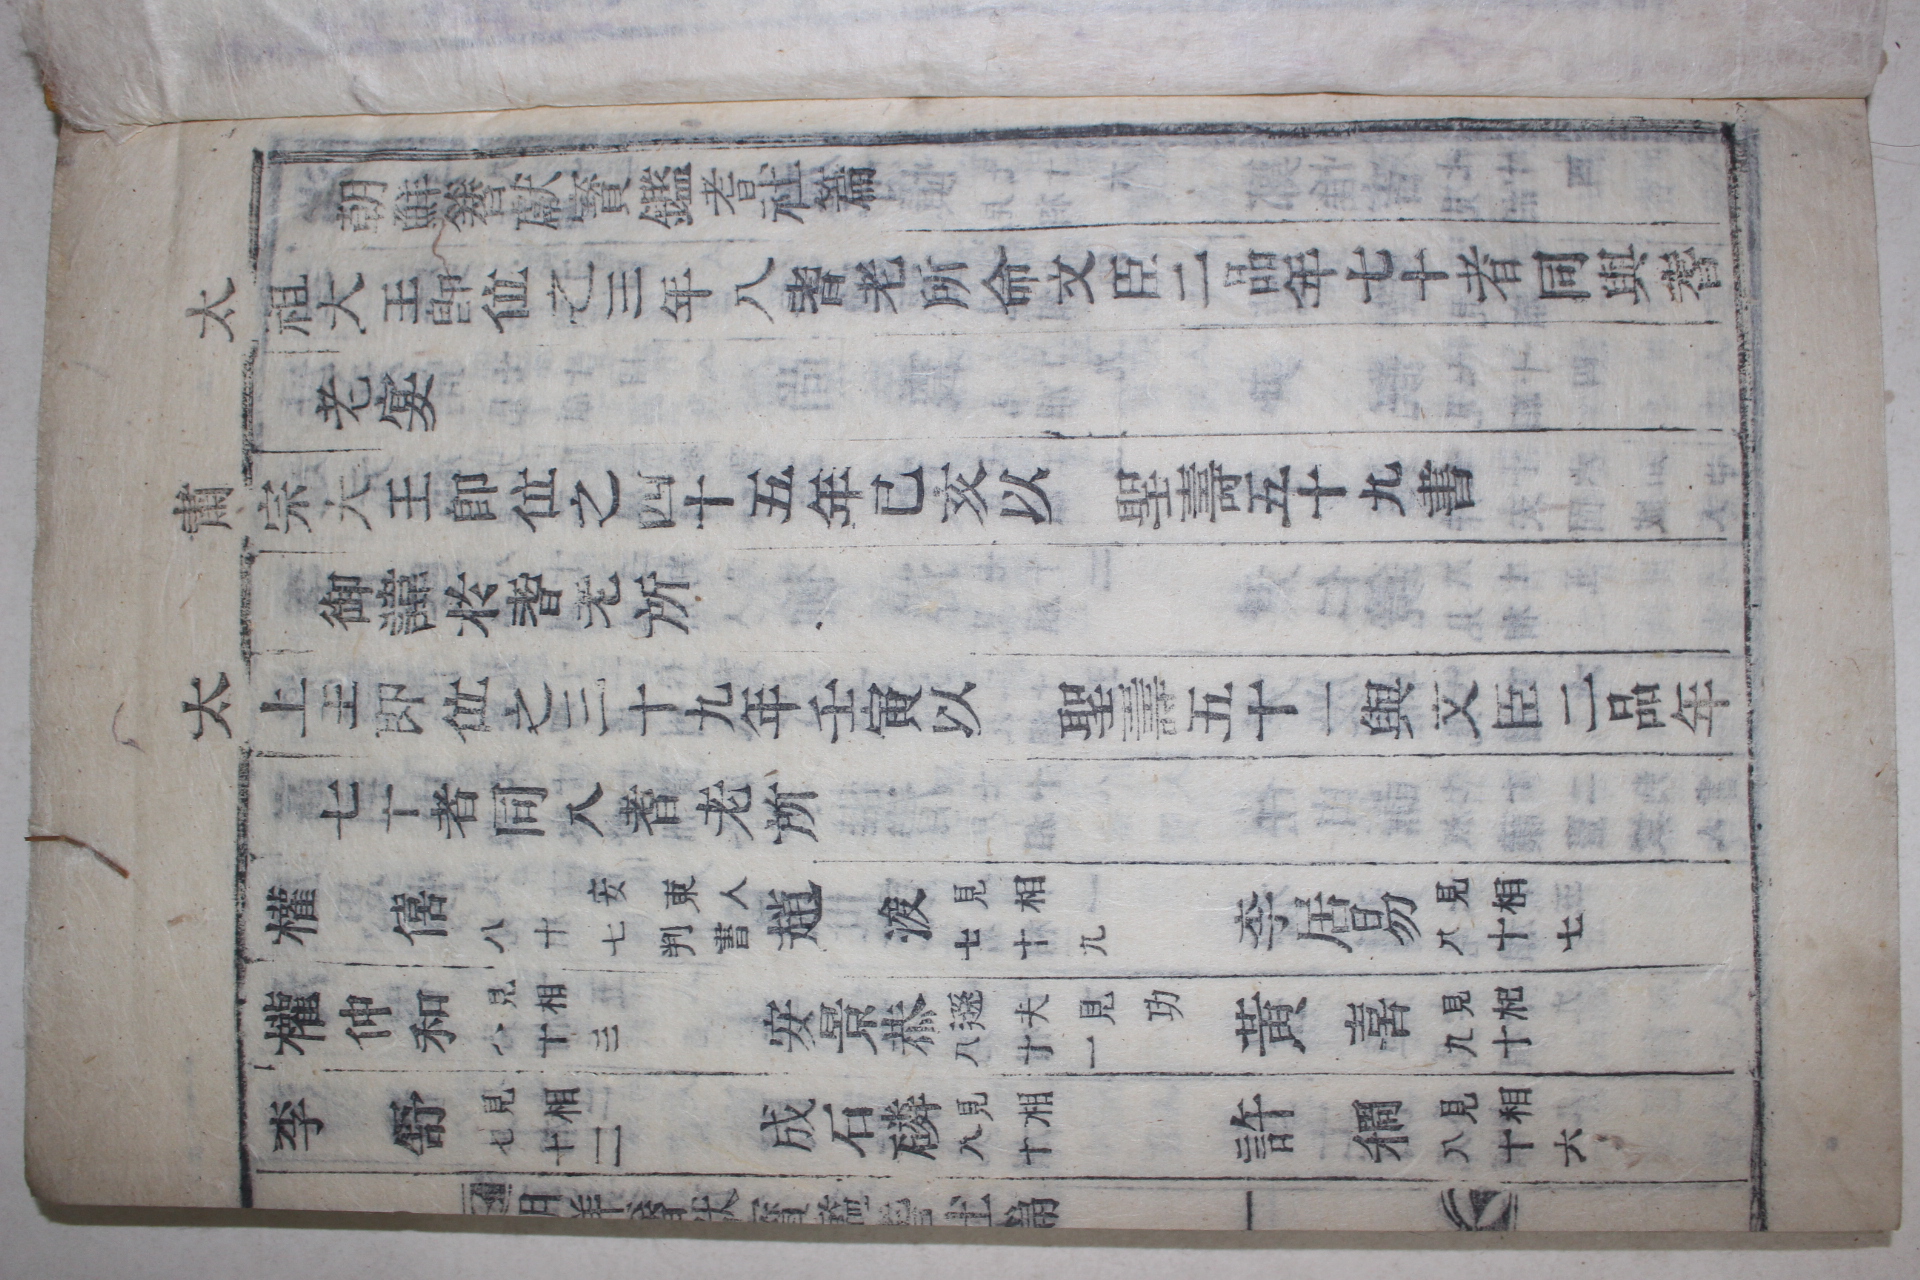 朝鮮簪獻寶鑑耆社篇
太祖大王即位之三年入耆老所命文臣二品年七十者同與耆
老宴
肅宗大王即位之四十五年己亥以 聖壽五十九書
御諱於耆老所
太上王即位之三十九年壬寅以 聖壽五十一與文臣二品年
七十者同入耆老所
權僖 八十七 安東人判書 趙浚 見相七十九 李居易 見相八十七
權仲和 見相八十三 安景恭 遜夫見功八十一 黃喜 見相九十
李舒 見相七十二 成石璘 見相八十 許稠 見相八十六